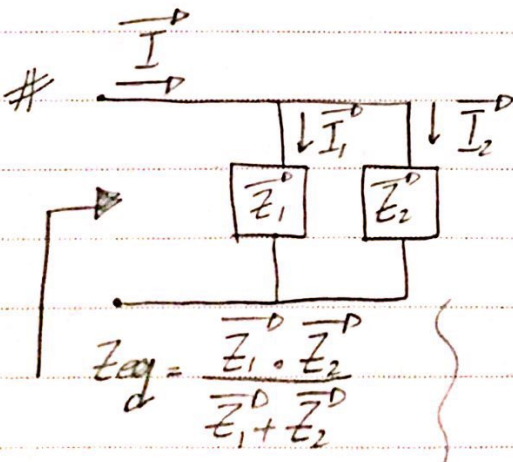 I⃗
# I⃗₁ I⃗₂
Z⃗₁ Z⃗₂
Zeq = Z⃗₁ . Z⃗₂
Z⃗₁ + Z⃗₂